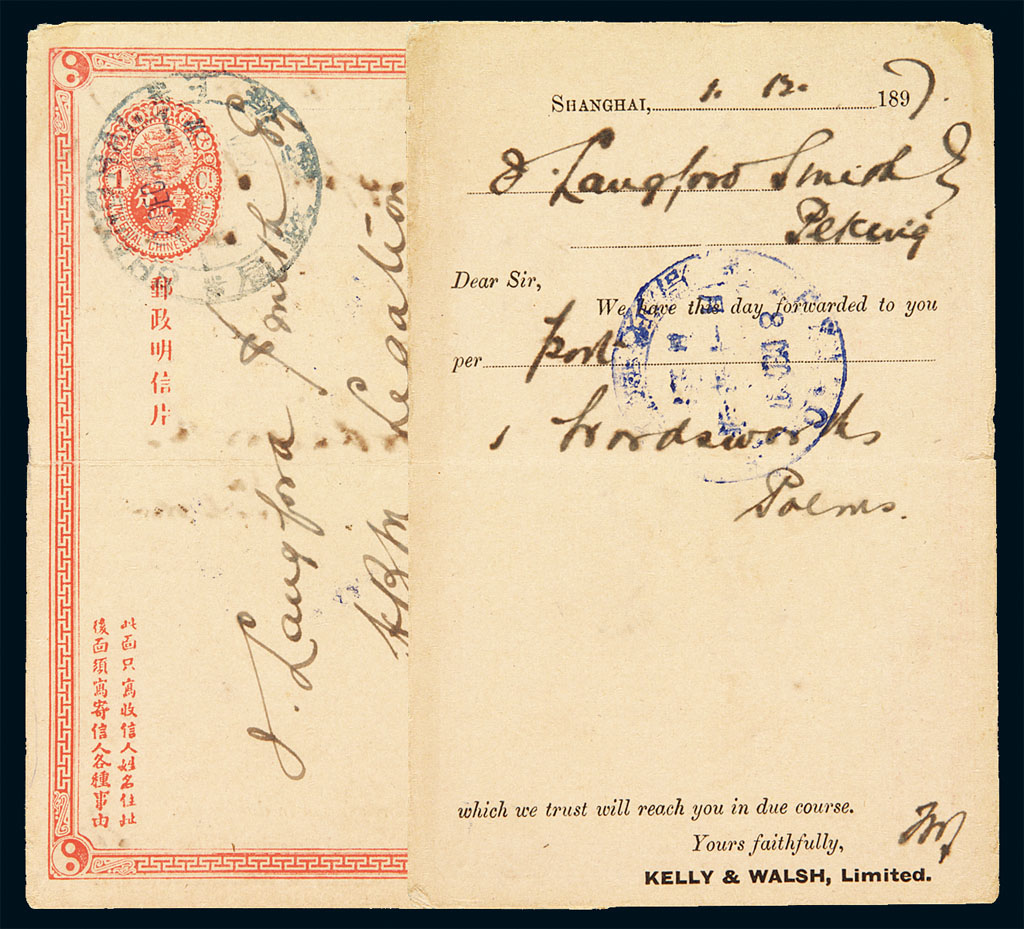 1 Ct
IMPERIAL CHINESE POST
壹分
郵政明信片
此面只寫收信人姓名住址
後面須寫寄信人各種事由
J. Langford Smith Esq
HBM Legation
SHANGHAI, 1. 12. 1897.
J. Langford Smith
Peking
Dear Sir,
We have this day forwarded to you
per post
1 Wordsworth's
Poems.
which we trust will reach you in due course.
Yours faithfully,
KELLY & WALSH, Limited.